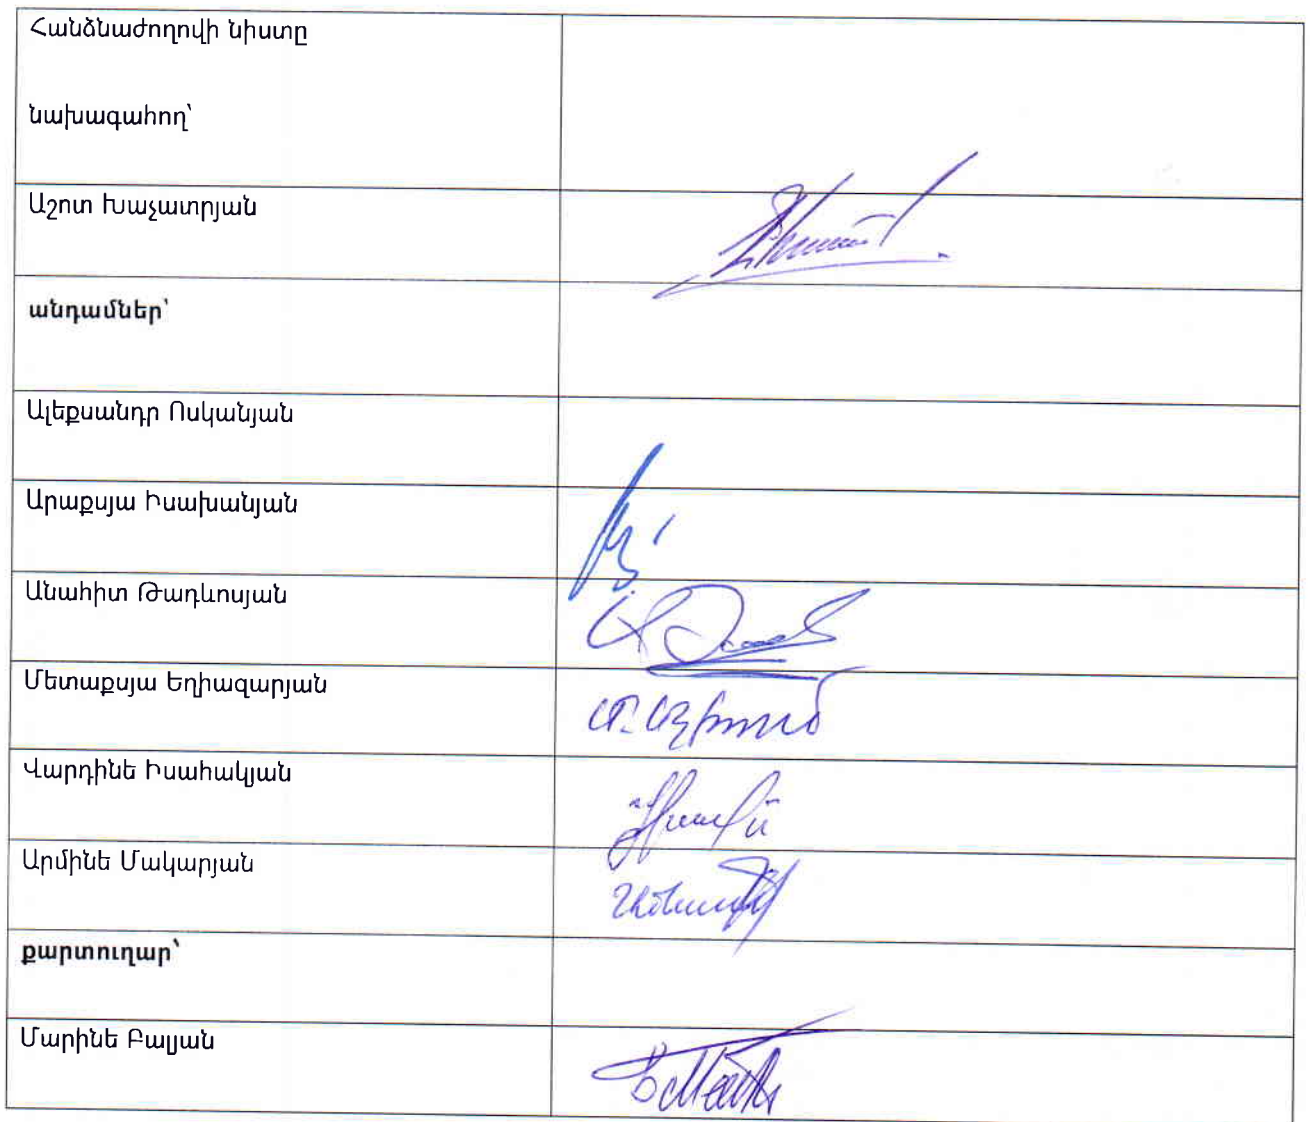 Հանձնաժողովի նիստը
նախագահող՝
Աշոտ Խաչատրյան
անդամներ՝
Ալեքսանդր Ոսկանյան
Արաքսյա Իսախանյան
Անահիտ Թադևոսյան
Մետաքսյա Եղիազարյան
Վարդինե Իսահակյան
Արմինե Մակարյան
քարտուղար՝
Մարինե Բալյան